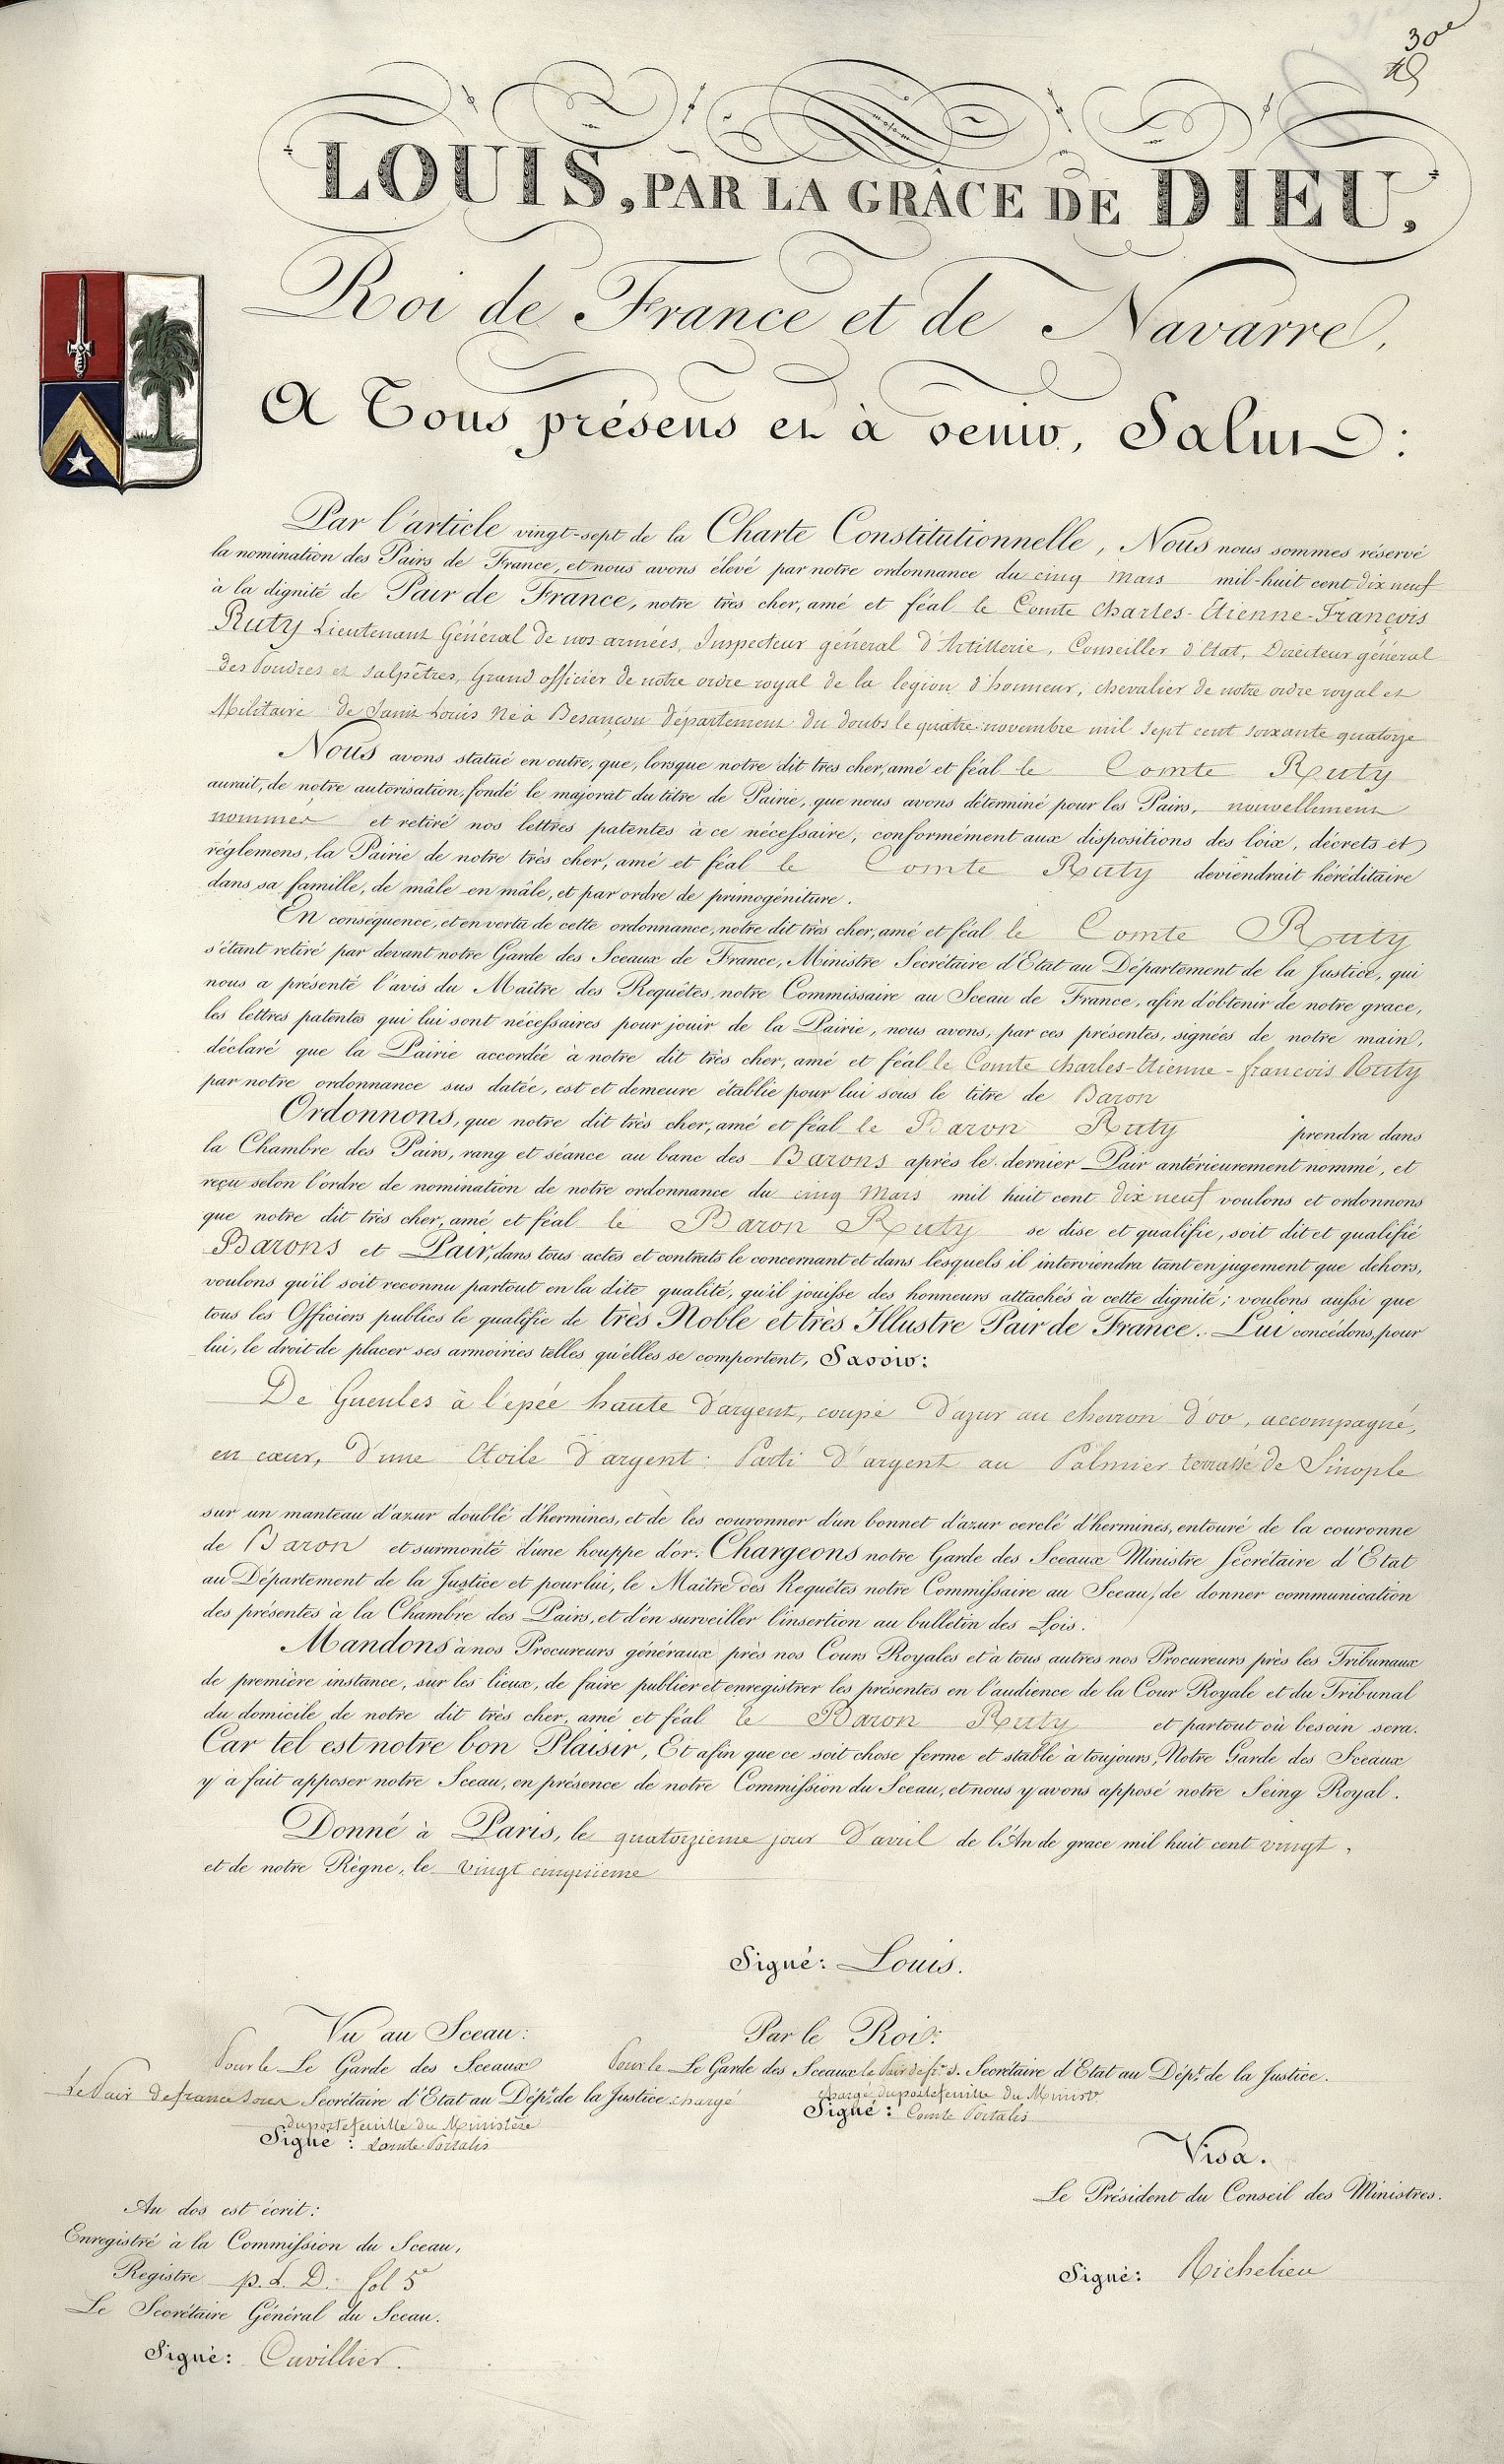 30e
LOUIS, PAR LA GRÂCE DE DIEU,
Roi de France et de Navarre,
A Tous présens et à venir, Salut :
Par l'article vingt-sept de la Charte Constitutionnelle, Nous nous sommes réservé
la nomination des Pairs de France, et nous avons élevé par notre ordonnance du cinq Mars mil-huit cent dix neuf
à la dignité de Pair de France, notre très cher, amé et féal le Comte Charles-Etienne-François
Ruty Lieutenant Général de nos armées, Inspecteur général d'Artillerie, Conseiller d'Etat, Directeur général
des Poudres et Salpêtres, Grand officier de notre ordre royal de la légion d'honneur, chevalier de notre ordre royal et
Militaire de Saint Louis Né à Besançon département du doubs le quatre novembre mil sept cent soixante quatorze
Nous avons statué en outre, que, lorsque notre dit très cher, amé et féal le Comte Ruty
aurait, de notre autorisation, fondé le majorat du titre de Pairie, que nous avons déterminé pour les Pairs, nouvellement
nommés et retiré nos lettres patentes à ce nécessaire, conformément aux dispositions des loix, décrets et
réglemens, la Pairie de notre très cher, amé et féal le Comte Ruty deviendrait héréditaire
dans sa famille, de mâle en mâle, et par ordre de primogéniture.
En conséquence, et en vertu de cette ordonnance, notre dit très cher, amé et féal le Comte Ruty
s'étant retiré par devant notre Garde des Sceaux de France, Ministre Secrétaire d'Etat au Département de la Justice, qui
nous a présenté l'avis du Maître des Requêtes, notre Commissaire au Sceau de France, afin d'obtenir de notre grace,
les lettres patentes qui lui sont nécessaires pour jouir de la Pairie, nous avons, par ces présentes, signées de notre main,
déclaré que la Pairie accordée à notre dit très cher, amé et féal le Comte Charles-Etienne-francois Ruty
par notre ordonnance sus datée, est et demeure établie pour lui sous le titre de Baron
Ordonnons, que notre dit très cher, amé et féal le Baron Ruty prendra dans
la Chambre des Pairs, rang et séance au banc des Barons après le dernier Pair antérieurement nommé, et
reçu selon l'ordre de nomination de notre ordonnance du cinq Mars mil huit cent dix neuf voulons et ordonnons
que notre dit très cher, amé et féal le Baron Ruty se dise et qualifie, soit dit et qualifié
Barons et Pair, dans tous actes et contrats le concernant et dans lesquels il interviendra tant en jugement que déhors,
voulons qu'il soit reconnu partout en la dite qualité, qu'il jouisse des honneurs attachés à cette dignité; voulons aussi que
tous les Officiers publics le qualifie de très Noble et très Illustre Pair de France. Lui concédons, pour
lui, le droit de placer ses armoiries telles qu'elles se comportent, Savoir :
De Gueules à l'épée haute d'argent, coupé d'azur au chevron d'or, accompagné,
en cœur, d'une Etoile d'argent : Parti d'argent au Palmier terrassé de Sinople
sur un manteau d'azur doublé d'hermines, et de les couronner d'un bonnet d'azur cerclé d'hermines, entouré de la couronne
de Baron et surmonté d'une houppe d'or. Chargeons notre Garde des Sceaux Ministre Secrétaire d'Etat
au Département de la Justice et pour lui, le Maître des Requêtes notre Commissaire au Sceau, de donner communication
des présentes à la Chambre des Pairs, et d'en surveiller l'insertion au bulletin des Lois.
Mandons à nos Procureurs généraux près nos Cours Royales et à tous autres nos Procureurs près les Tribunaux
de première instance, sur les lieux, de faire publier et enregistrer les présentes en l'audience de la Cour Royale et du Tribunal
du domicile de notre dit très cher, amé et féal le Baron Ruty et partout où besoin sera.
Car tel est notre bon Plaisir, Et afin que ce soit chose ferme et stable à toujours, Notre Garde des Sceaux
y a fait apposer notre Sceau, en présence de notre Commission du Sceau, et nous y avons apposé notre Seing Royal.
Donné à Paris, le quatorzieme jour d'avril de l'An de grace mil huit cent vingt,
et de notre Règne, le vingt cinquieme
Signé : Louis.
Vu au Sceau :
Pour le Le Garde des Sceaux
Le Pair de france sous Secrétaire d'Etat au Dépt. de la Justice chargé
du portefeuille du Ministère
Signé : Comte Portalis
Par le Roi :
Pour le Le Garde des Sceaux le Pair de fr. s. Secrétaire d'Etat au Dépt. de la Justice.
chargé du portefeuille du Minist
Signé : Comte Portalis
Visa.
Le Président du Conseil des Ministres.
Signé : Richelieu
Au dos est écrit :
Enregistré à la Commission du Sceau,
Registre p. L. D. fol 5
Le Secrétaire Général du Sceau.
Signé : Cuvillier.